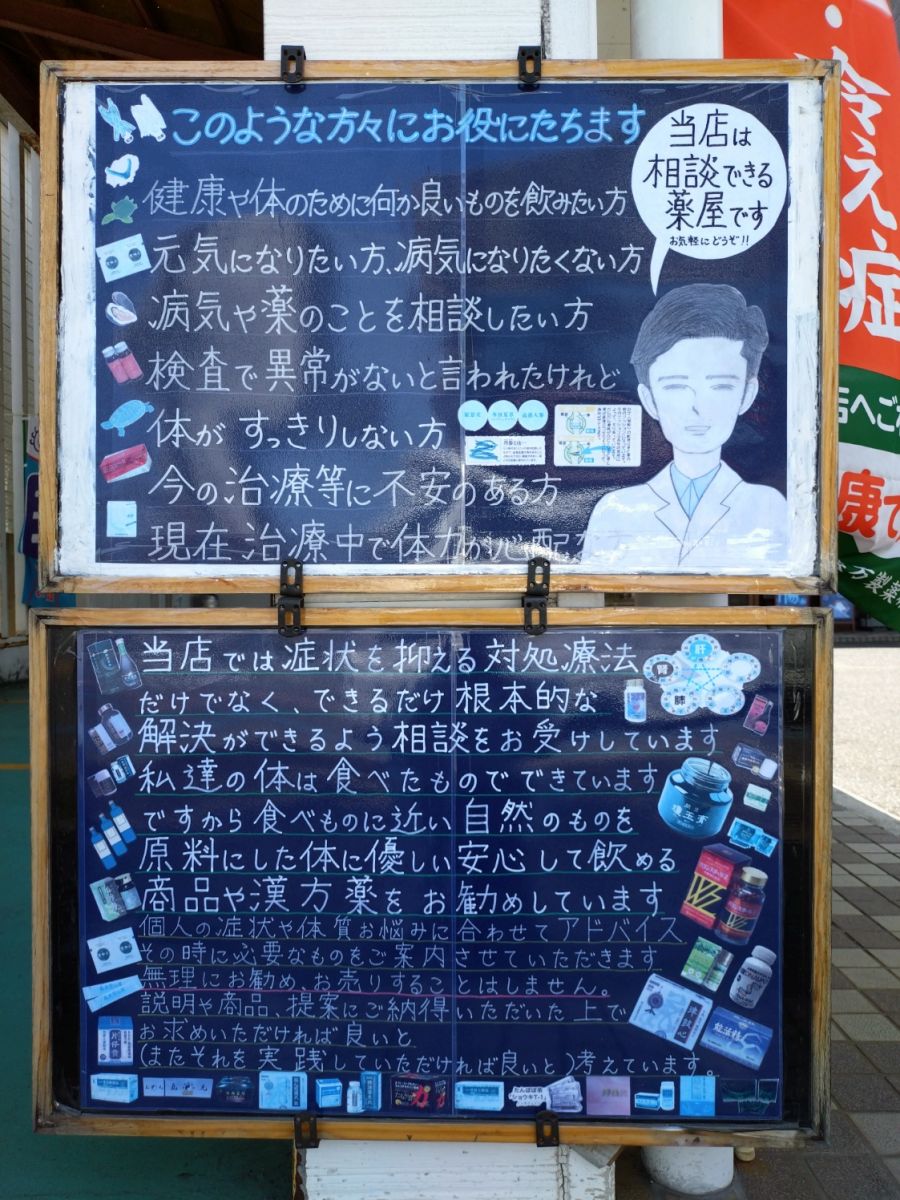 このような方々にお役にたちます
当店は
相談できる
薬屋です
お気軽にどうぞ!!
健康や体のために何か良いものを飲みたい方
元気になりたい方、病気になりたくない方
病気や薬のことを相談したい方
検査で異常がないと言われたけれど
体がすっきりしない方
今の治療等に不安のある方
現在治療中で体力が心配な
冷え症
当店では症状を抑える対処療法
だけでなく、できるだけ根本的な
解決ができるよう相談をお受けしています
私達の体は食べたものでできています
ですから食べものに近い自然のものを
原料にした体に優しい安心して飲める
商品や漢方薬をお勧めしています
個人の症状や体質お悩みに合わせてアドバイス
その時に必要なものをご案内させていただきます
無理にお勧め、お売りすることはしません。
説明や商品、提案にご納得いただいた上で
お求めいただければ良いと
(またそれを実践していただければ良いと)考えています。
肝
腎
肺
瓊玉膏
WZ
たんぽぽ茶
ショウキT-1
店へご
康で
方製薬